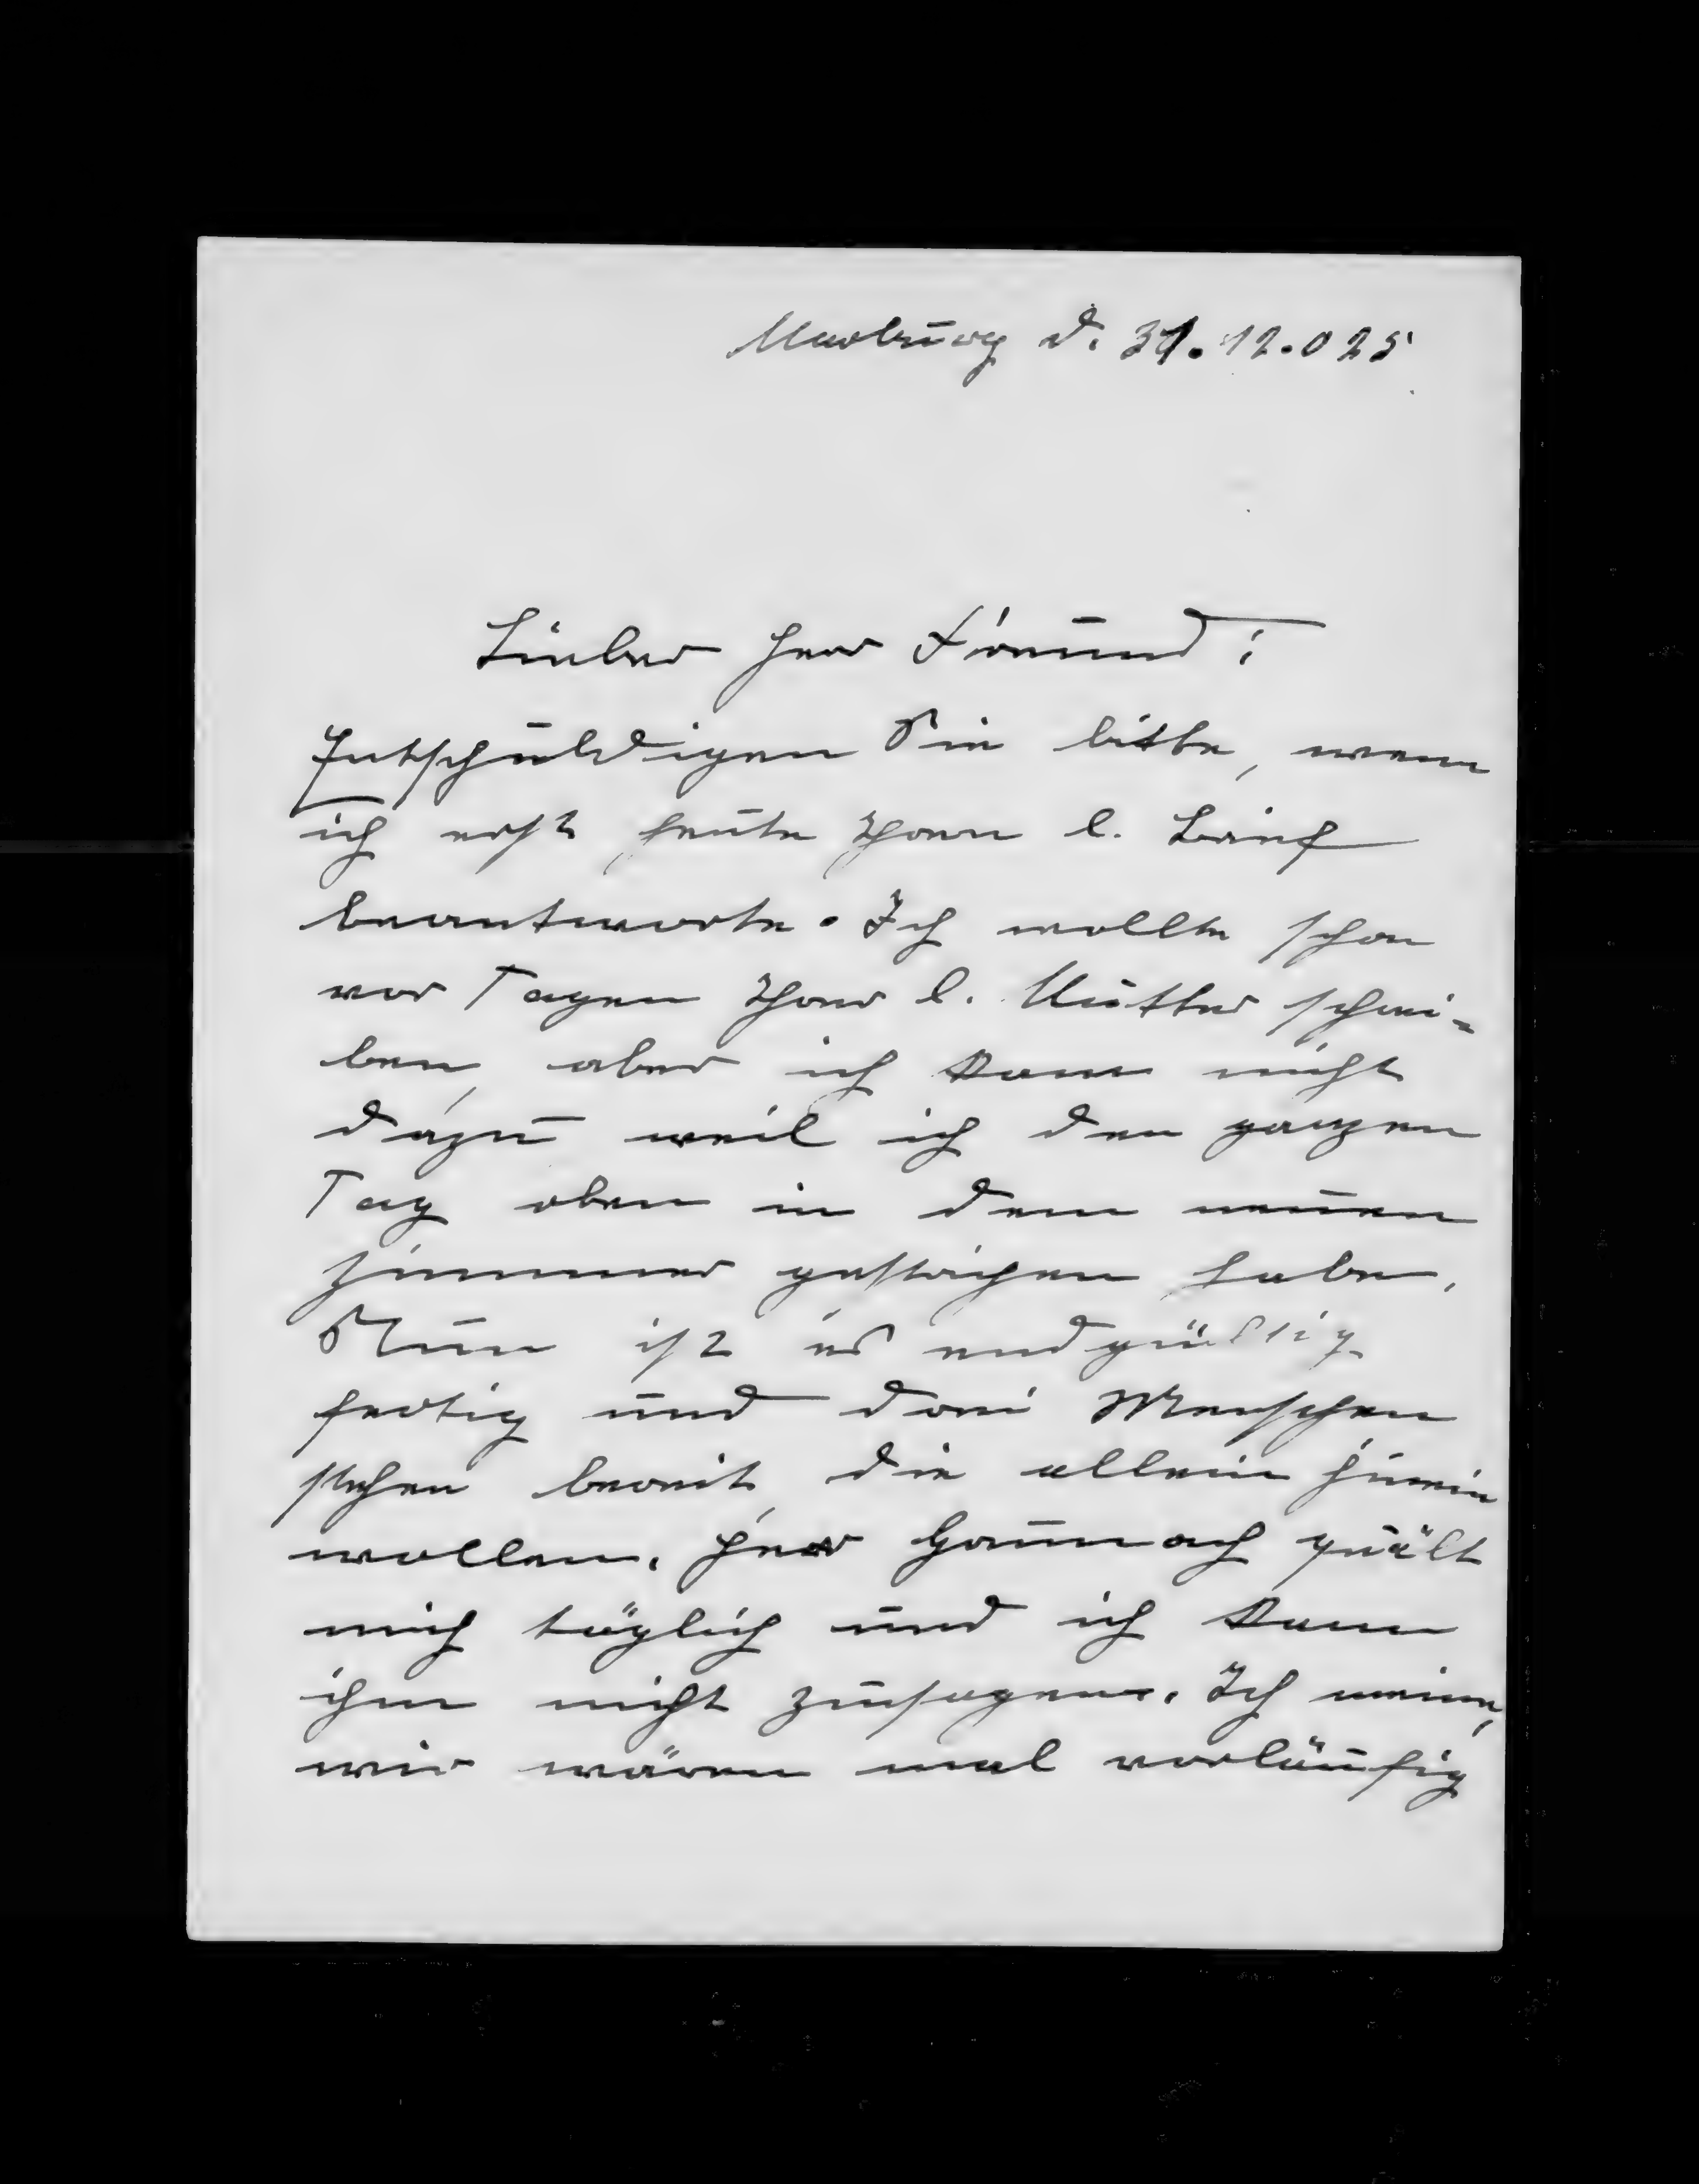 Marburg d. 31.12.025
Lieber Herr Freund!
Entschuldigen Sie bitte, wenn
ich erst heute Ihren l. Brief
beantworte. Ich wollte schon
vor Tagen Ihrer l. Mutter schrei-
ben, aber ich kam nicht
dazu weil ich den ganzen
Tag oben in dem neuen
Zimmer gestrichen habe.
Nun ist es endgültig
fertig und drei Menschen
stehen bereit, die allein hinein
wollen. Herr quält
mich täglich und ich kann
ihm nicht zusagen. Ich meine,
wir wären mal vorläufig